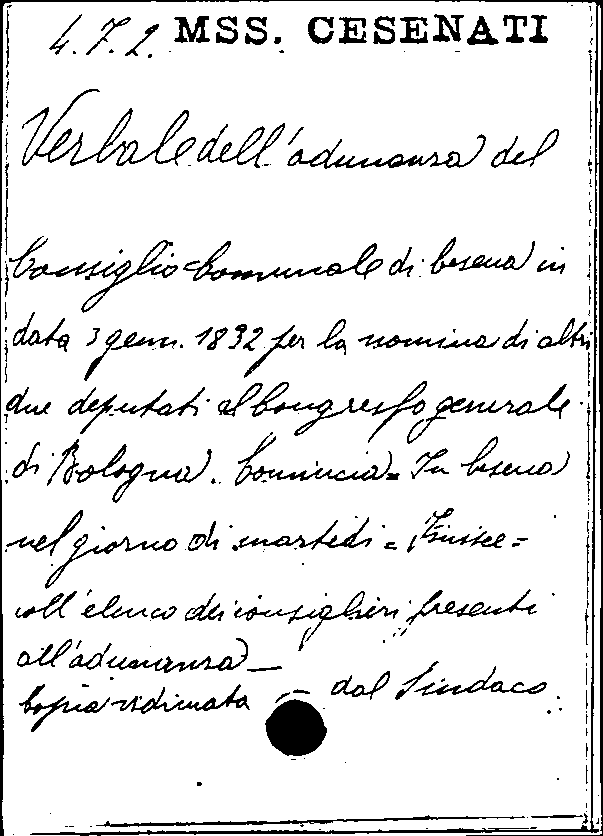 4.7.2. MSS. CESENATI
Verbale dell'adunanza del
Consiglio Comunale di Cesena in
data 3 genn. 1832 per la nomina di altri
due deputati al Congresso generale
di Bologna. Comincia = In Cesena
nel giorno di martedì = Finisce =
coll'elenco dei consiglieri presenti
all'adunanza —
Copia vidimata — dal Sindaco.